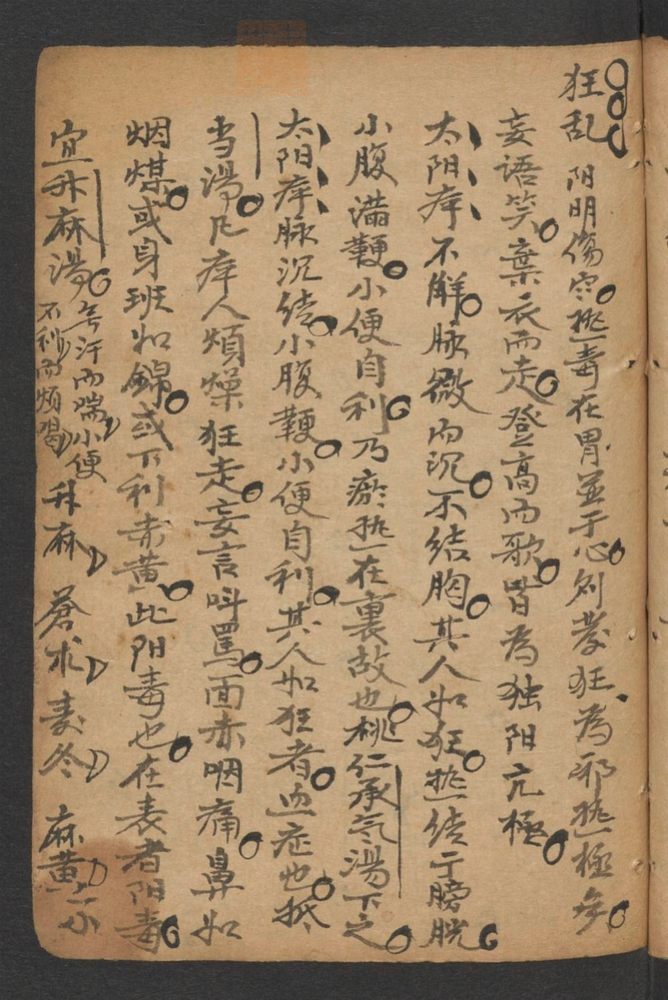 狂乱 阳明傷寒。热毒在胃並于心。則發狂、為邪热極矣。
妄語笑。棄衣而走。登高而歌。皆為独阳亢極。
太阳病不解。脉微而沉。不结胸。其人如狂。热结于膀胱。
小腹滿鞕。小便自利。乃瘀热在裏故也。桃仁承气湯下之。
太阳病脉沉结。小腹鞕。小便自利。其人如狂者。血症也。抵
当湯。凡病人煩燥狂走。妄言叫罵。面赤咽痛。鼻如
烟煤。或身班如錦。或下利赤黄。此阳毒也。在表者阳毒。
宜升麻湯。无汗而喘、小便不利而煩渴、升麻、蒼朮、麦冬、麻黄